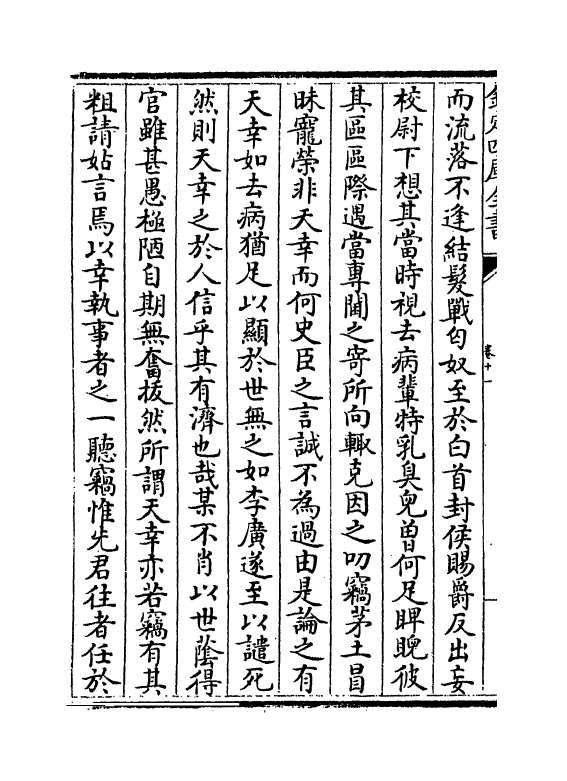 欽定四庫全書
卷十一
而流落不逢結髮戰匈奴至於白首封侯賜爵反出妄
校尉下想其當時視去病輩特乳臭兒曽何足睥睨彼
其區區際遇當專閫之寄所向輙克因之叨竊茅土冒
昧寵榮非天幸而何史臣之言誠不為過由是論之有
天幸如去病猶足以顯於世無之如李廣遂至以譴死
然則天幸之於人信乎其有濟也哉某不肖以世䕃得
官雖甚愚極陋自期無奮拔然所謂天幸亦若竊有其
粗請姑言焉以幸執事者之一聽竊惟先君往者任於